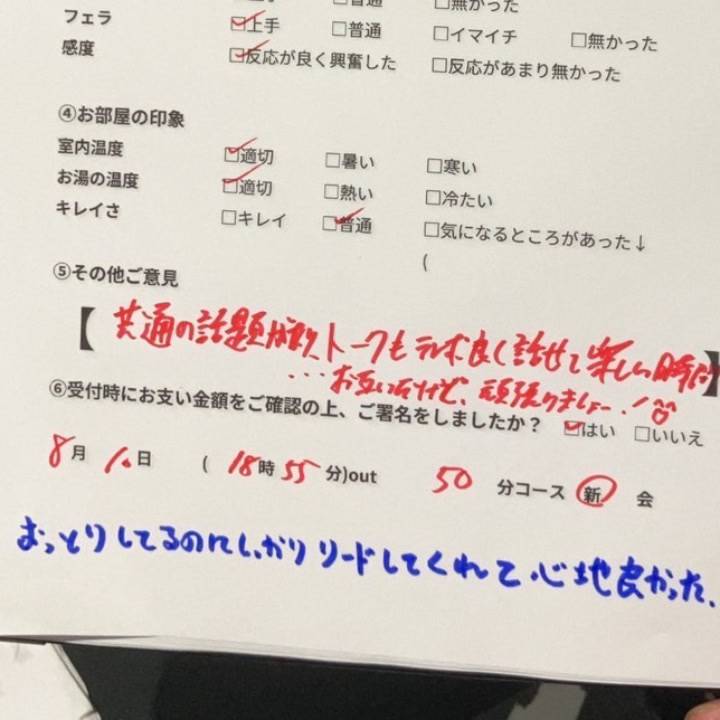 □普通 □無かった
フェラ ☑上手 □普通 □イマイチ □無かった
感度 ☑反応が良く興奮した □反応があまり無かった
④お部屋の印象
室内温度 ☑適切 □暑い □寒い
お湯の温度 ☑適切 □熱い □冷たい
キレイさ □キレイ ☑普通 □気になるところがあった↓
(
⑤その他ご意見
【共通の話題 トークも 良く話せて楽しい時間】
...お互い 、頑張りましょー!
⑥受付時にお支払い金額をご確認の上、ご署名をしましたか? ☑はい □いいえ
8月10日 (18時55分)out 50分コース 新 会
おっとりしてるのにしっかりリードしてくれて心地良かった.